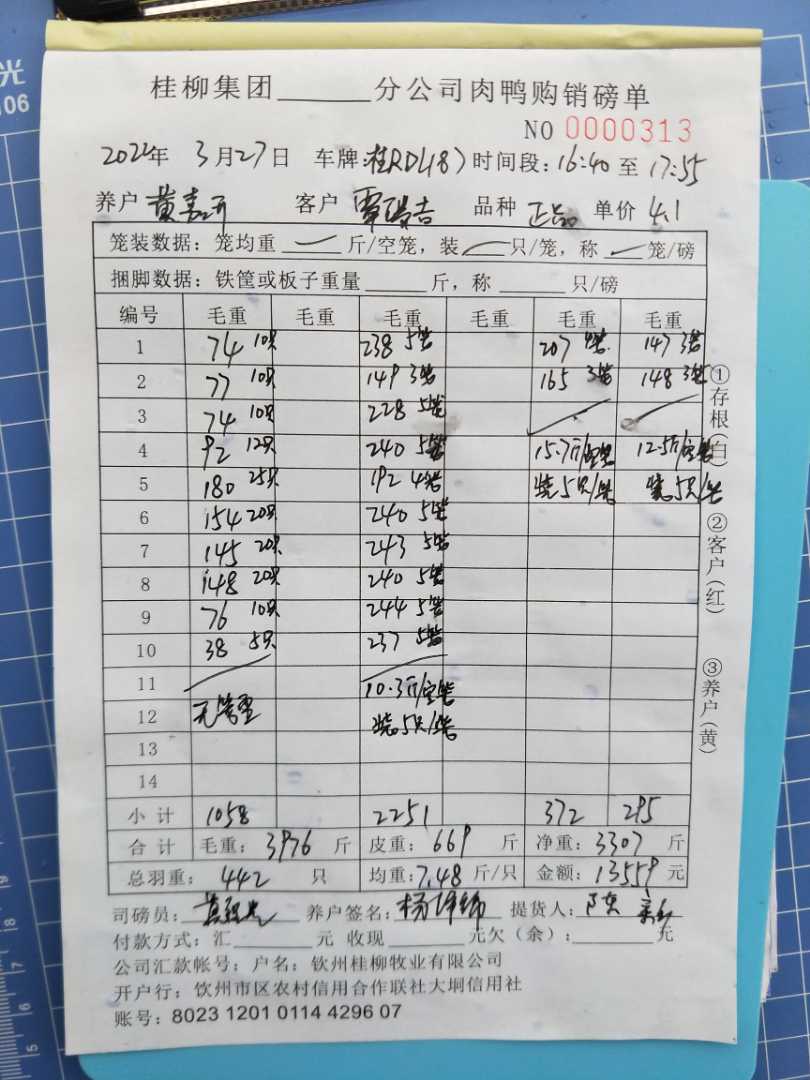 桂柳集团______分公司肉鸭购销磅单
NO 0000313
2022年 3月27日 车牌:桂RD(18) 时间段:16:40 至 17:55
养户 客户 覃 品种 正品 单价 4.1
笼装数据:笼均重 斤/空笼,装 只/笼,称 笼/磅
捆脚数据:铁筐或板子重量______斤,称______只/磅
编号 毛重 毛重 毛重 毛重 毛重 毛重
1 74 10只 238 5笼 207 4笼 147 3笼
2 77 10只 149 3笼 165 3笼 148 3笼
3 74 10只 228 5笼
4 92 12只 240 5笼 15.7斤/空笼 12.5斤/空笼
5 180 25只 192 4笼 装5只/笼 装5只/笼
6 154 20只 240 5笼
7 145 20只 243 5笼
8 148 20只 240 5笼
9 76 10只 244 5笼
10 38 5只 237 5笼
11 10.3斤/空笼
12 无笼重 装5只/笼
13
14
小计 1058 2251 372 295
合计 毛重:3976 斤 皮重:669 斤 净重:3307 斤
总羽重:442 只 均重:7.48 斤/只 金额:13559 元
司磅员: 养户签名:杨 提货人:
付款方式:汇______元 收现______元欠(余):______元
公司汇款帐号:户名:钦州桂柳牧业有限公司
开户行:钦州市区农村信用合作联社大垌信用社
账号:8023 1201 0114 4296 07
①存根(白)
②客户(红)
③养户(黄)
光
106